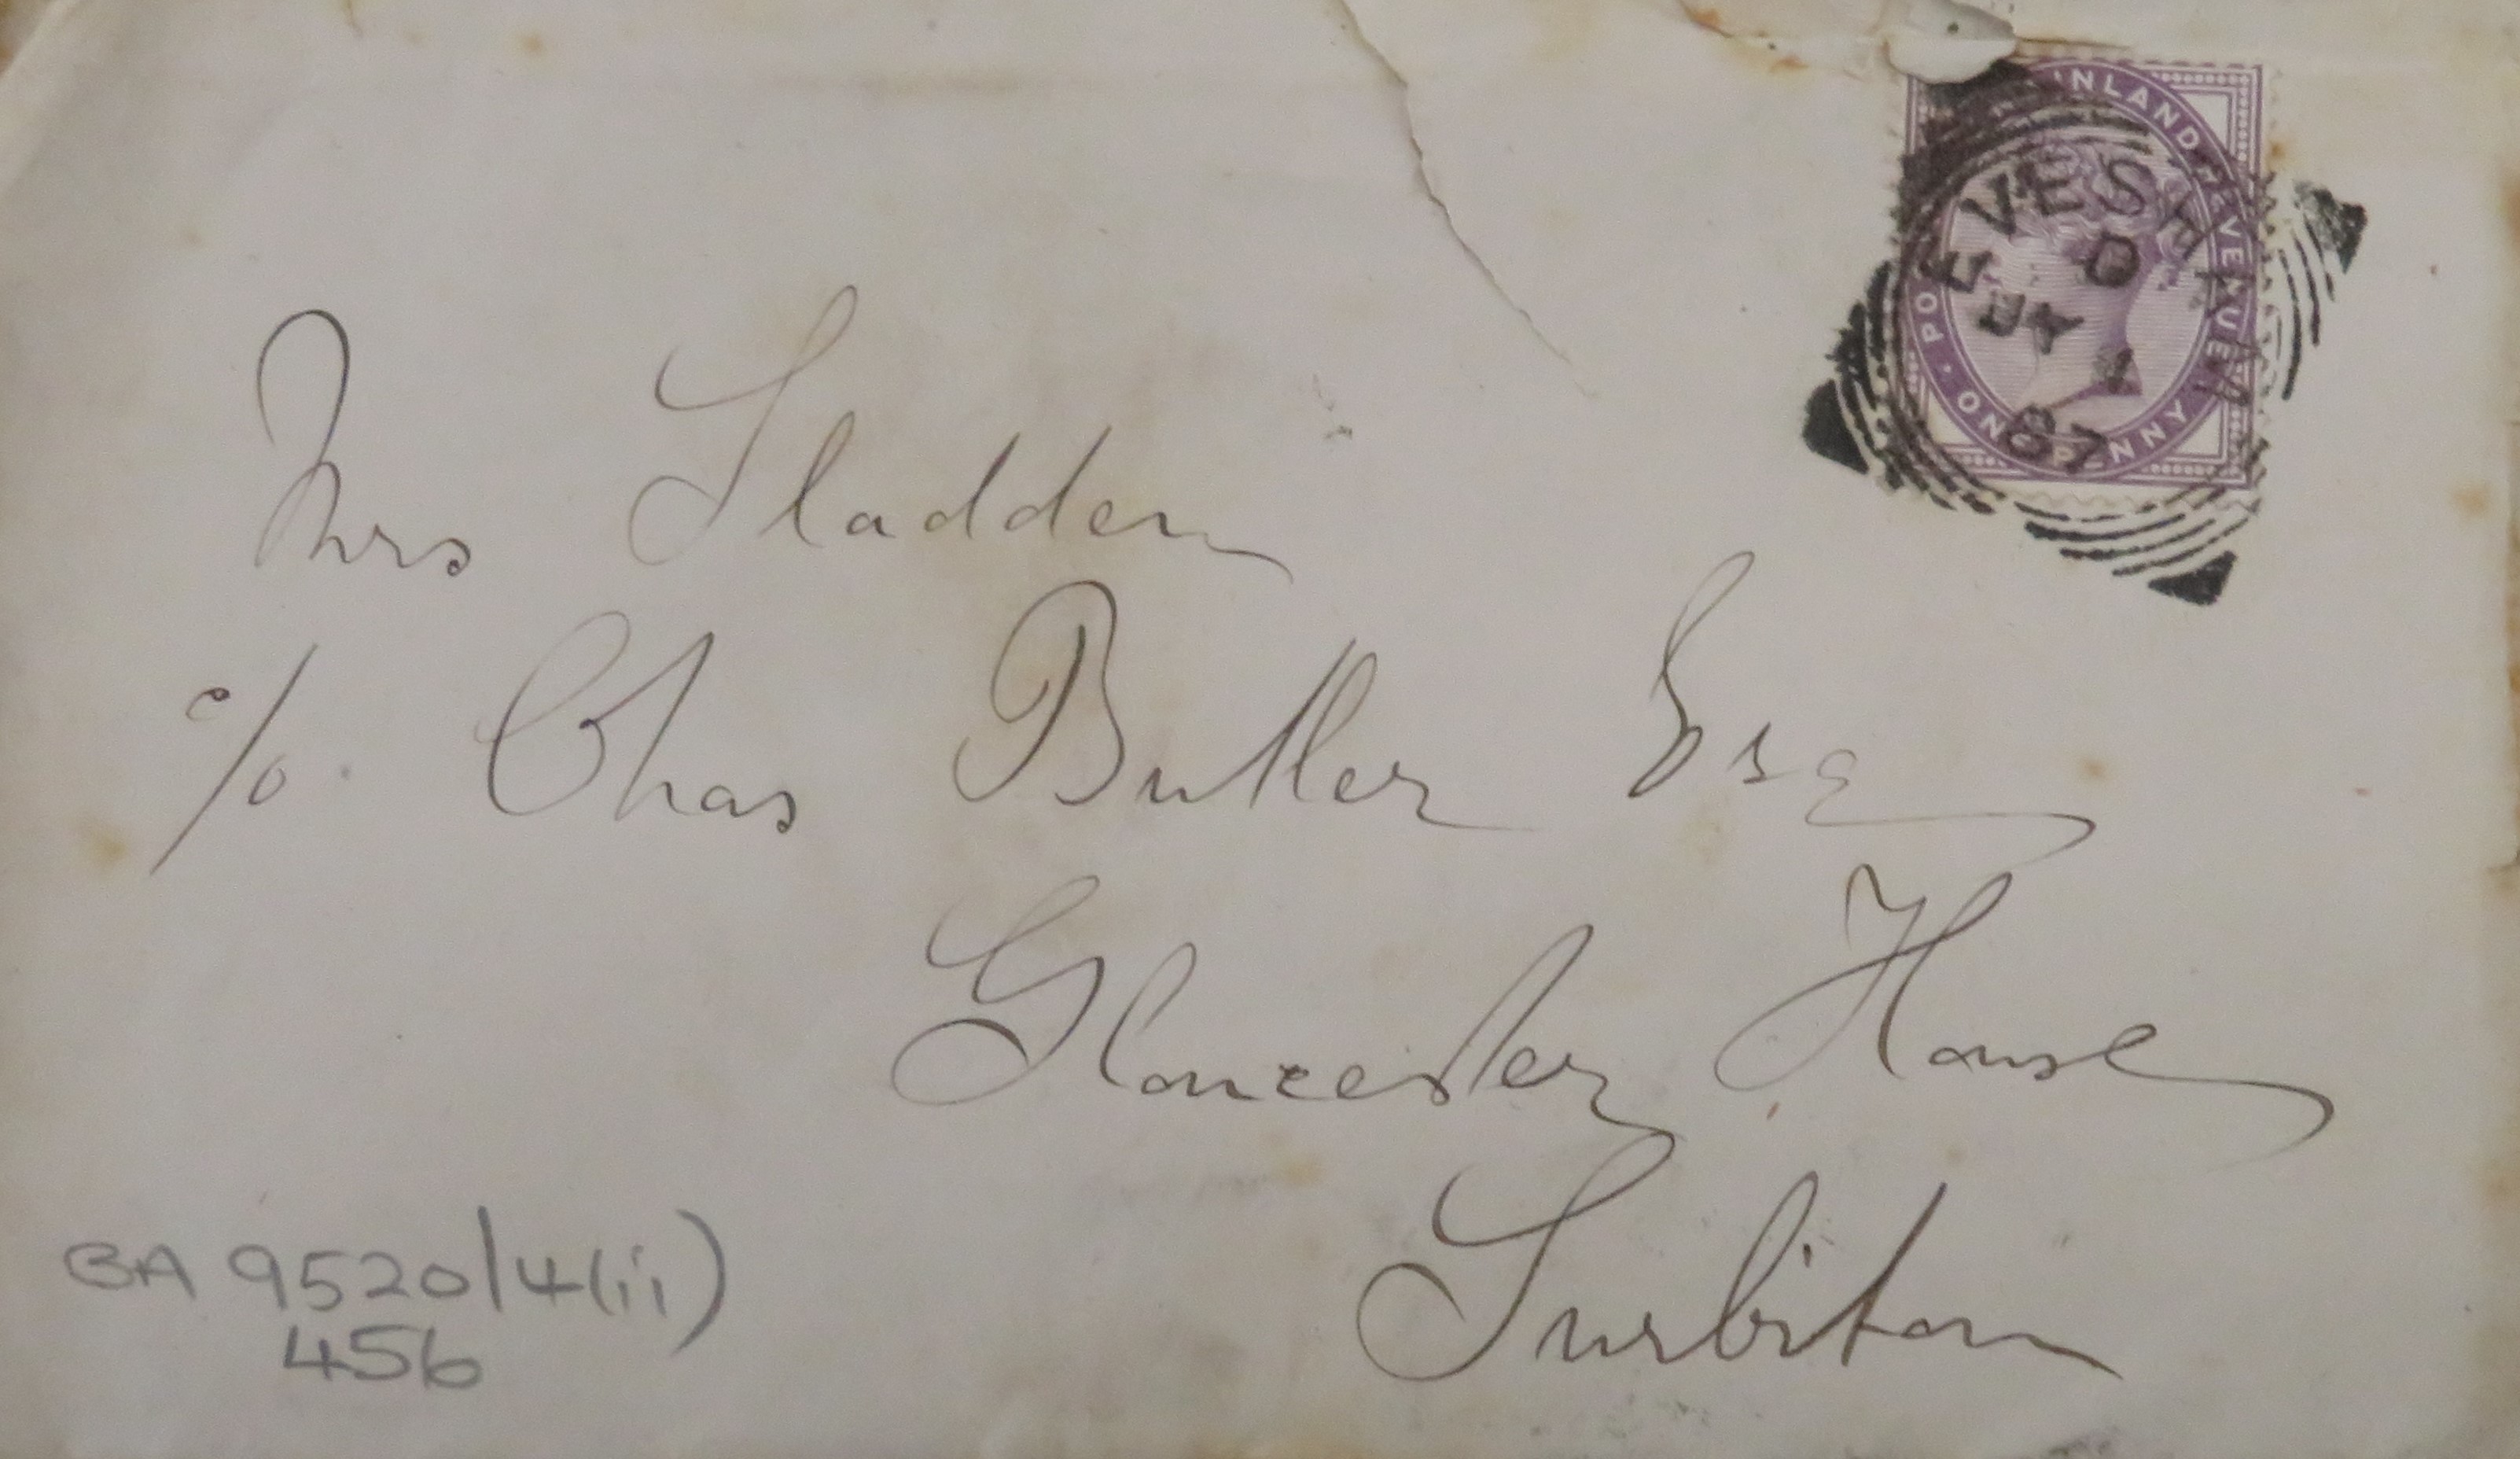 INLAND REVENUE
PO
ONE PENNY
EVESHAM
D
JY 1
87
Mrs Sladden
c/o. Chas Butler Esq
Gloucester House
Surbiton
BA 9520/4(ii)
456